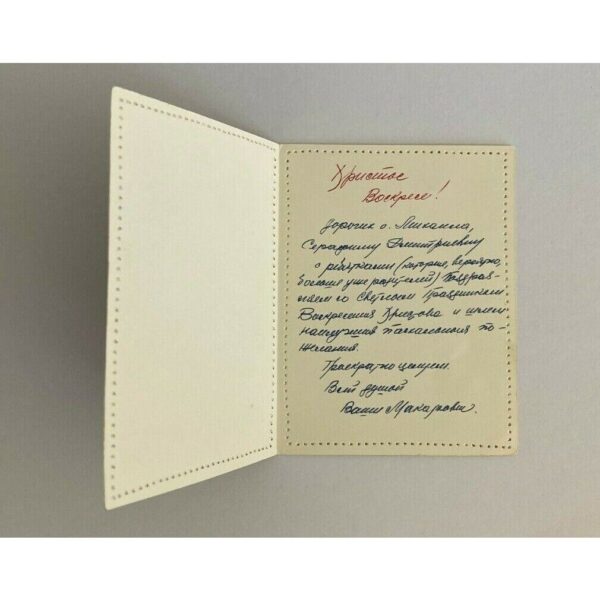 Христос
Воскресе!
Дорогих о. Михаила,
Серафиму Дмитриевну
с ребятками (которые, вероятно,
больше уже родителей) Поздрав-
ляем со Светлым Праздником
Воскресения Христова и шлем
наилучшие пасхальные по-
желания.
Троекратно целуем.
Всей душой
Ваши Макаровы.